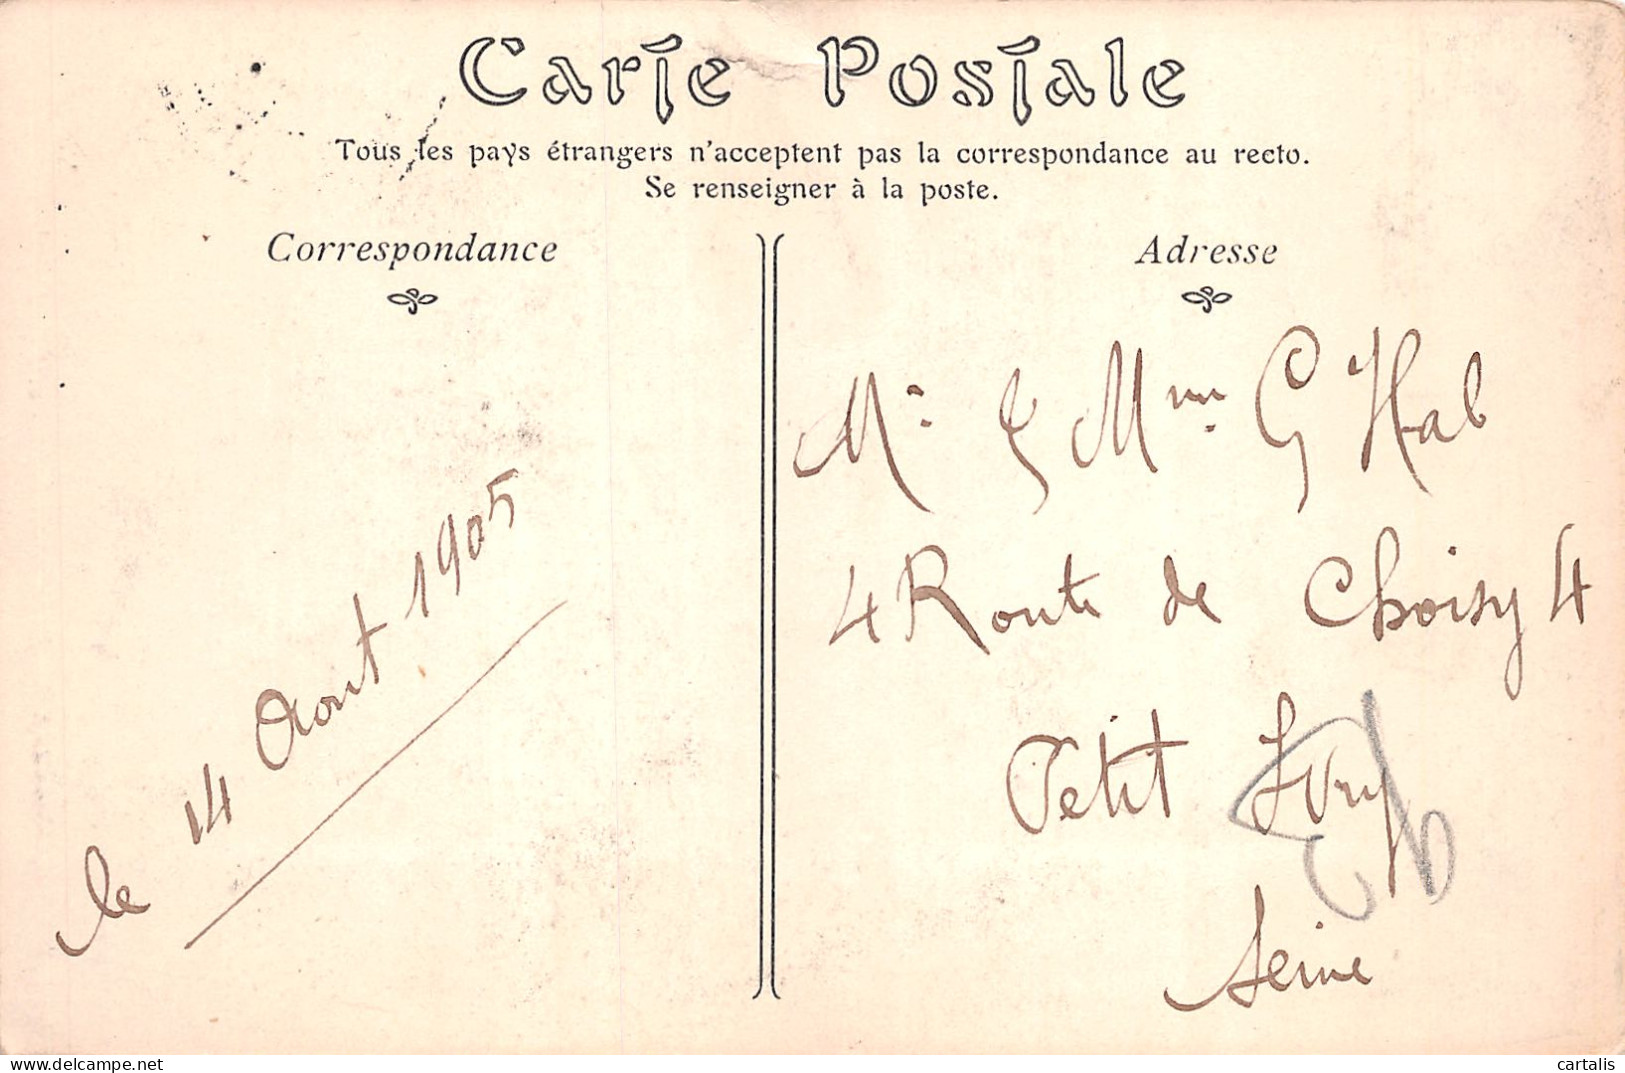 Carte Postale
Tous les pays étrangers n'acceptent pas la correspondance au recto.
Se renseigner à la poste.
Correspondance
le 14 Aout 1905
Adresse
Mr. & Mme. G Hab
4 Route de Choisy 4
Petit Ivry
Seine
www.delcampe.net
cartalis